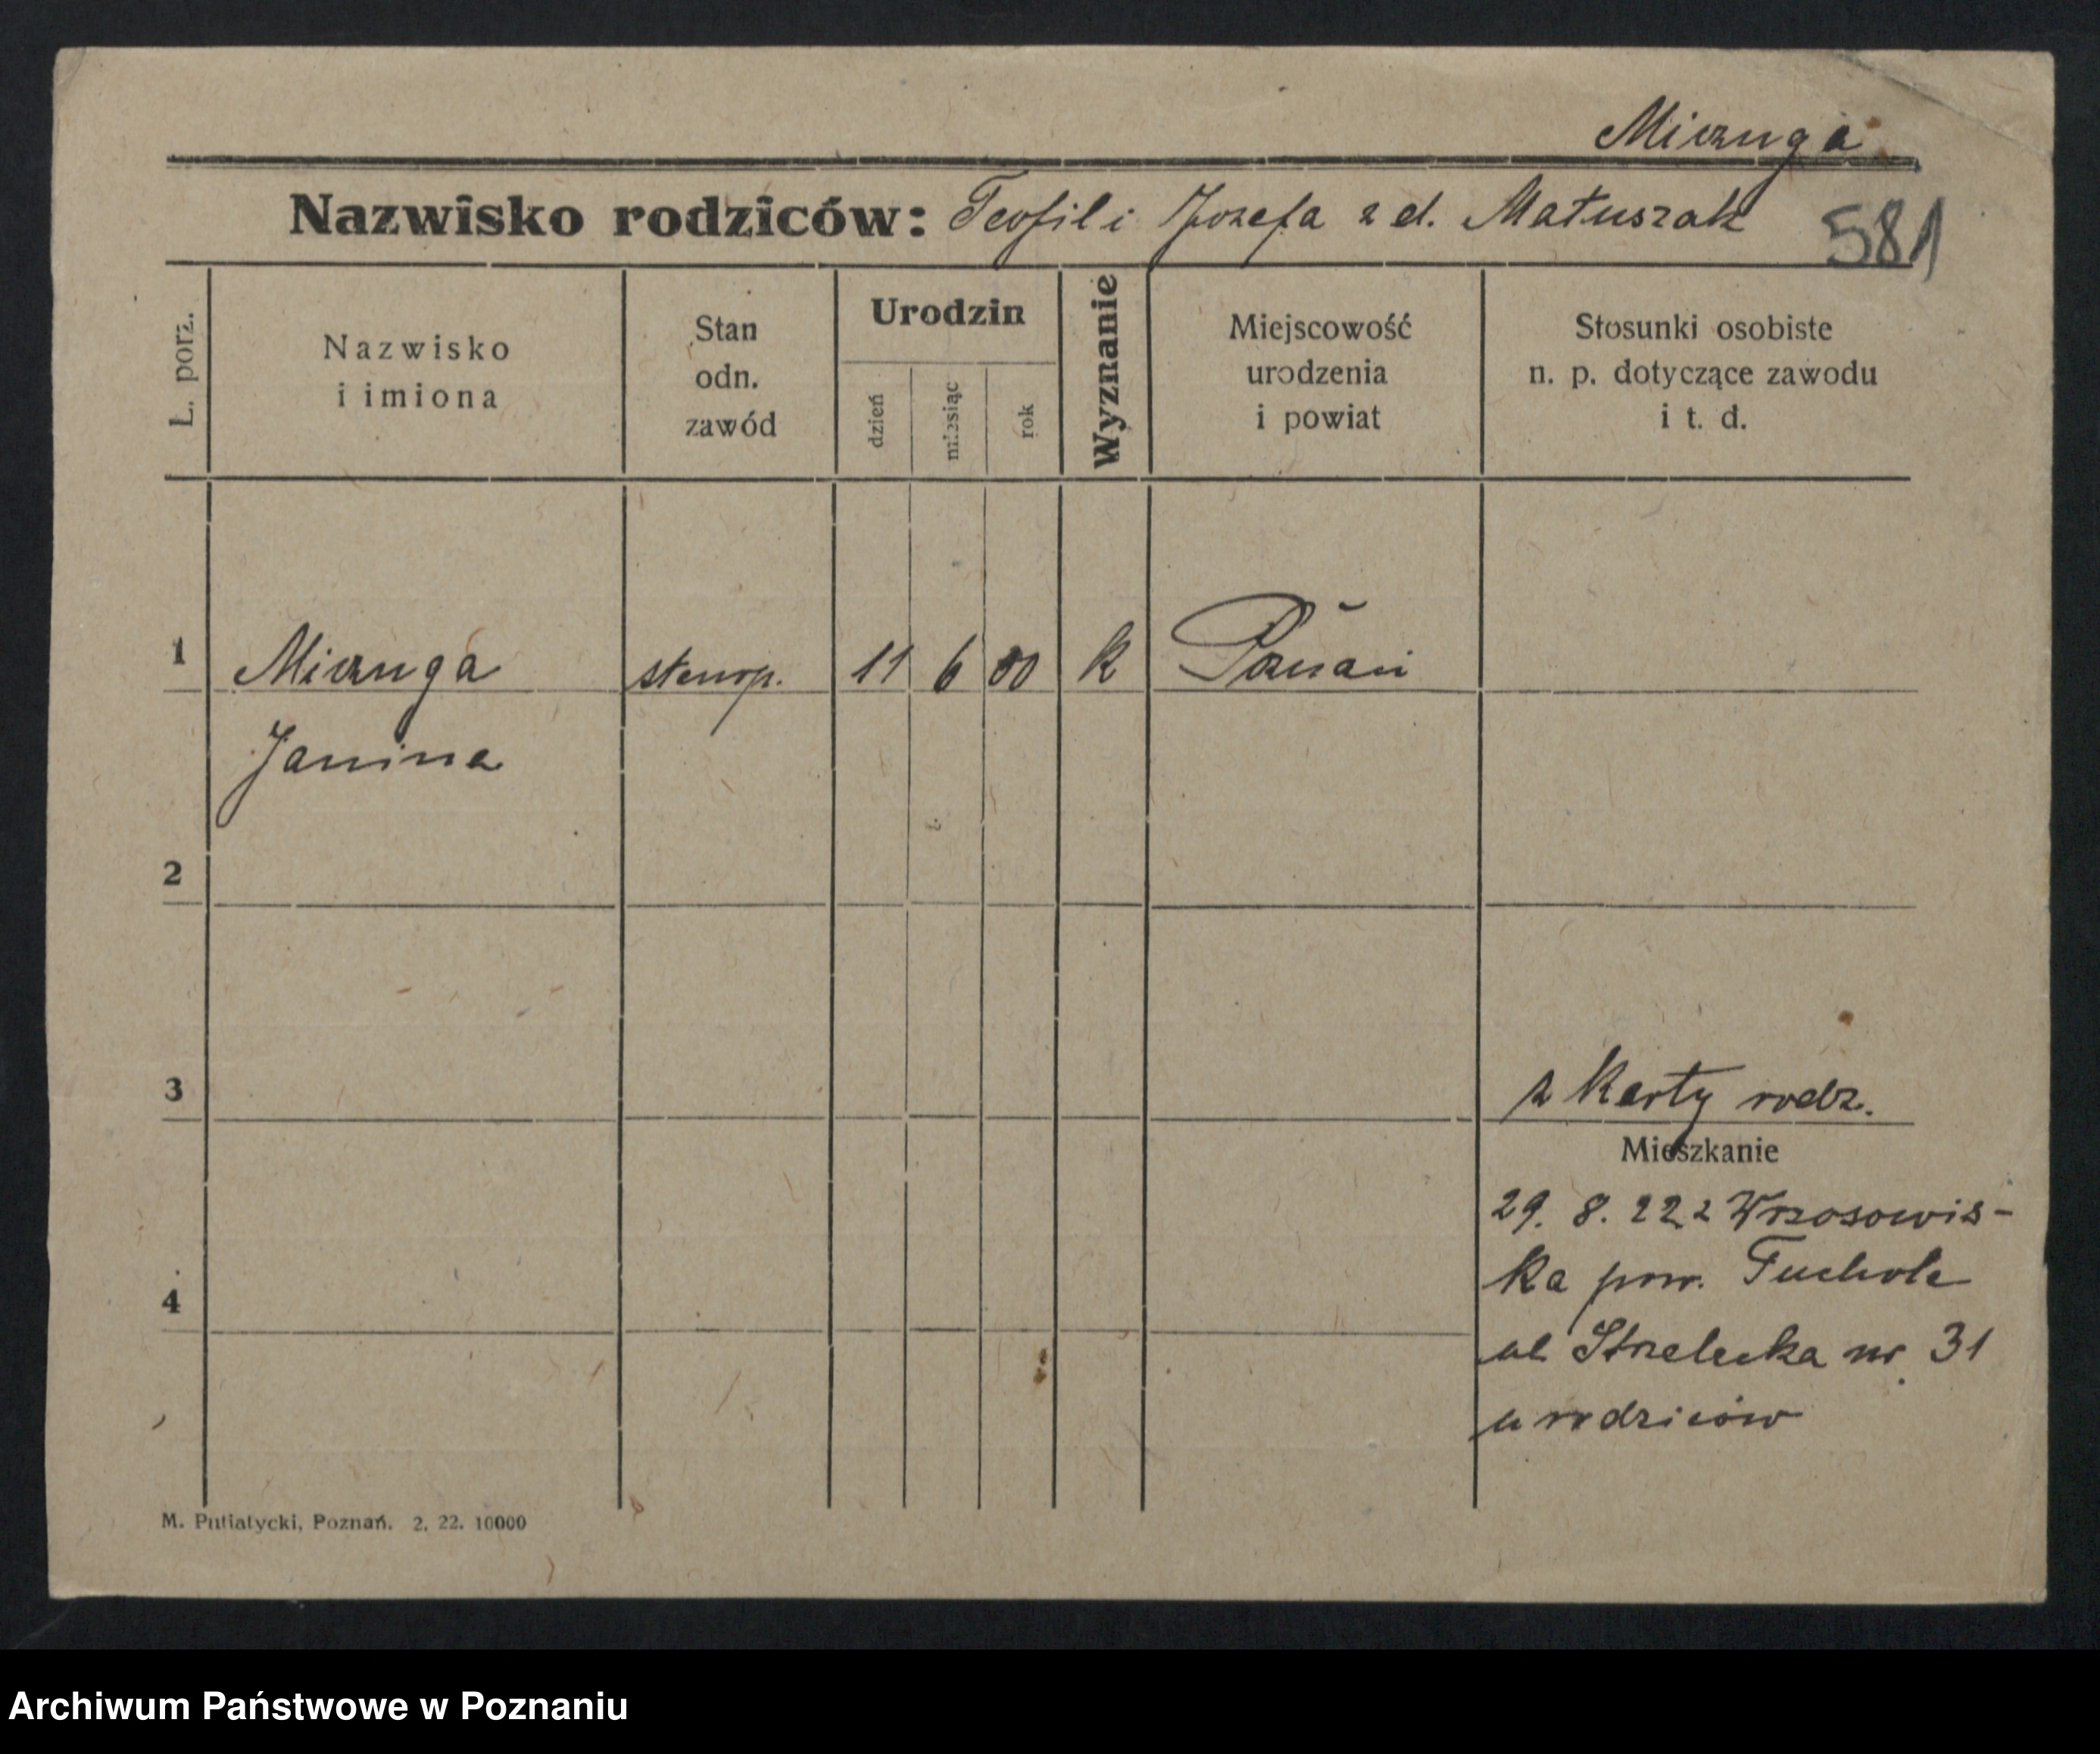 Miczuga
Nazwisko rodziców: Teofil i Jozefa z d. Matuszak
581
L. porz.
Nazwisko
i imiona
Stan
odn.
zawód
Urodzin
dzień
miesiąc
rok
Wyznanie
Miejscowość
urodzenia
i powiat
Stosunki osobiste
n. p. dotyczące zawodu
i t. d.
1 Miczuga stenop. 11 6 00 k Poznań
Janina
2
3
z Karty rodz.
Mieszkanie
29. 8. 22 z Wrzosowis-
ka pow. Tuchola
4
ul Strzelecka nr. 31
u rodziców
M. Putiatycki, Poznań. 2. 22. 10000
Archiwum Państwowe w Poznaniu